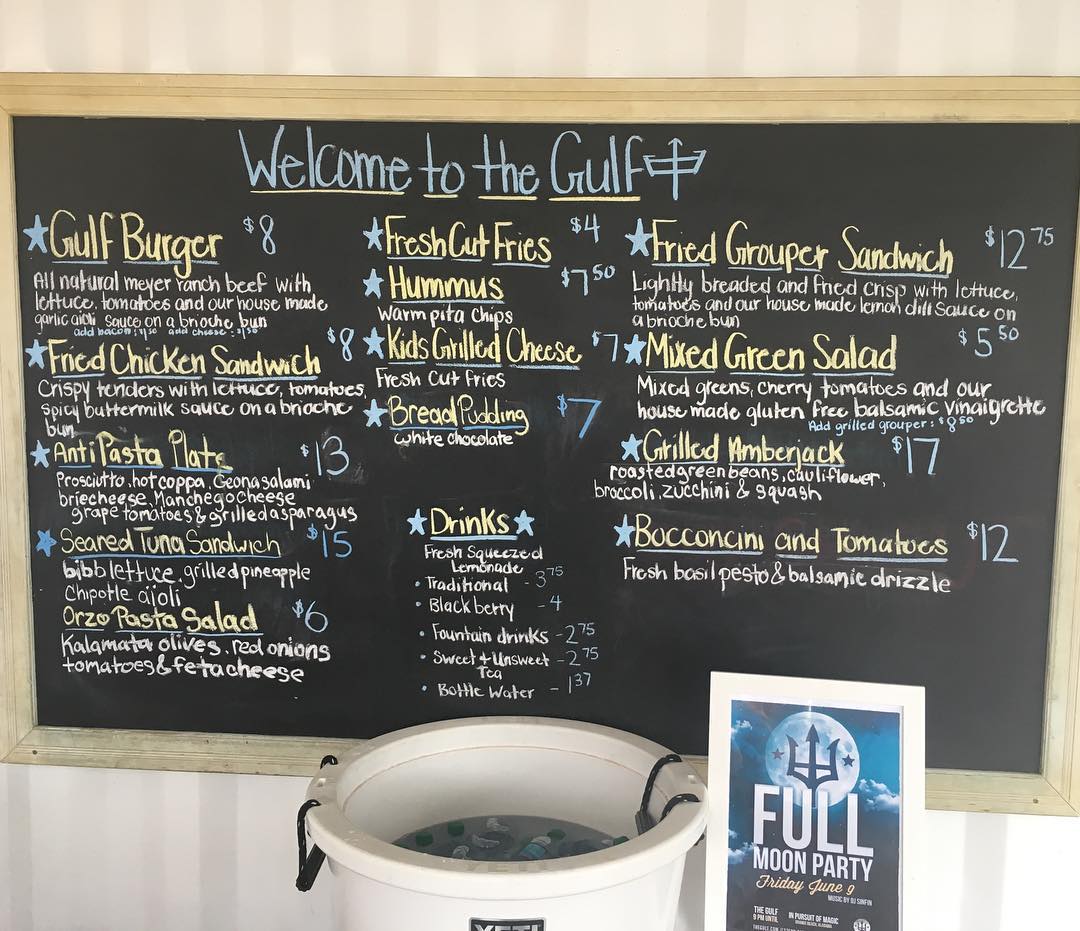 Welcome to the Gulf
Gulf Burger $8
All natural meyer ranch beef with
lettuce, tomatoes and our house made
garlic aioli sauce on a brioche bun
add bacon: $1.50 add cheese: $1.50
Fried Chicken Sandwich $8
Crispy tenders with lettuce, tomatoes,
spicy buttermilk sauce on a brioche
bun
AntiPasta Plate $13
Prosciutto, hot coppa, Geona salami
brie cheese, Manchego cheese
grape tomatoes & grilled asparagus
Seared Tuna Sandwich $15
bibb lettuce, grilled pineapple
Chipotle aioli
Orzo Pasta Salad $6
Kalamata olives, red onions
tomatoes & feta cheese
Fresh Cut Fries $4
Hummus $7.50
Warm pita chips
Kids Grilled Cheese $7
Fresh Cut Fries
Bread Pudding $7
white chocolate
Drinks
Fresh Squeezed
Lemonade
• Traditional - 3.75
• Blackberry - 4
• Fountain drinks - 2.75
• Sweet + Unsweet - 2.75
Tea
• Bottle Water - 1.37
Fried Grouper Sandwich $12.75
Lightly breaded and fried crisp with lettuce,
tomatoes and our house made lemon dill sauce on
a brioche bun
Mixed Green Salad $5.50
Mixed greens, cherry tomatoes and our
house made gluten free balsamic vinaigrette
Add grilled grouper: $8.50
Grilled Amberjack $17
roasted green beans, cauliflower,
broccoli, zucchini & squash
Bocconcini and Tomatoes $12
Fresh basil pesto & balsamic drizzle
YETI
FULL
MOON PARTY
Friday June 9
MUSIC BY DJ SINFIN
THE GULF
9 PM UNTIL
IN PURSUIT OF MAGIC
ORANGE BEACH, ALABAMA